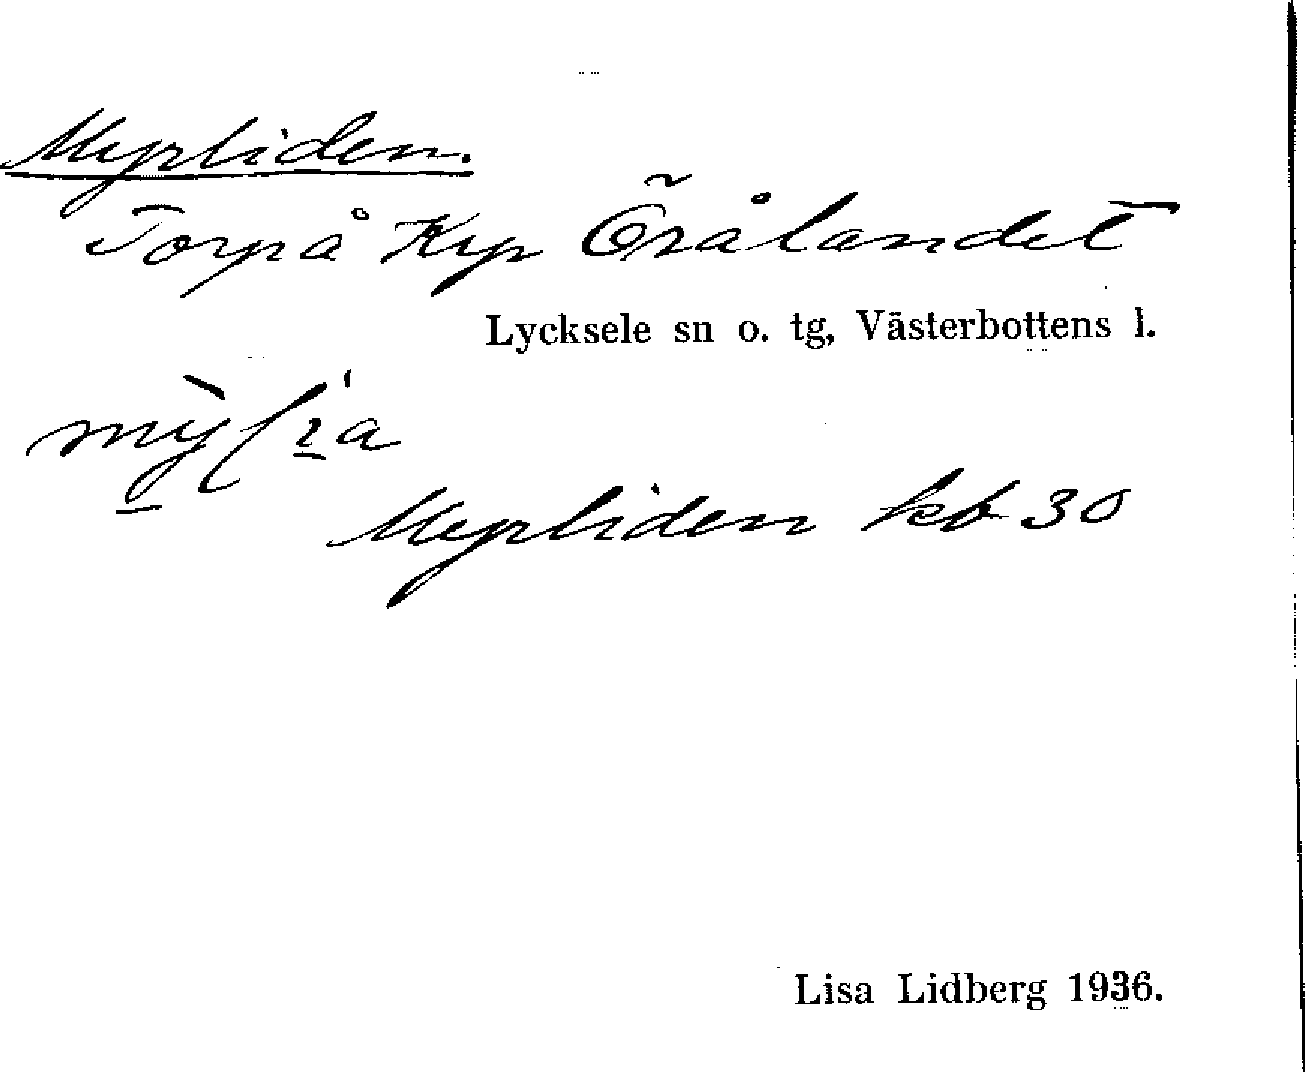 Myrliden.
Torp å Krp Örålandet
Lycksele sn o. tg, Västerbottens l.
Myrliden kb 30
Lisa Lidberg 1936.